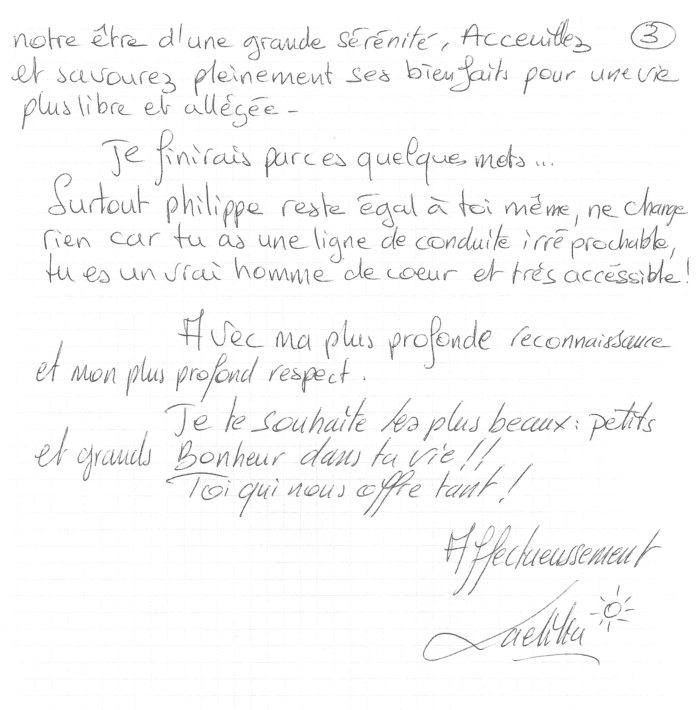 notre être d'une grande sérénité, Acceuillez ③
et savourez pleinement ses bienfaits pour une vie
plus libre et allégée -
Je finirais par ces quelques mots...
Surtout philippe reste égal à toi même, ne change
rien car tu as une ligne de conduite irréprochable,
tu es un vrai homme de coeur et très accéssible!
Avec ma plus profonde reconnaissance
et mon plus profond respect.
Je te souhaite les plus beaux: petits
et grands Bonheur dans ta vie!!
Toi qui nous offre tant!
Affectueussement
Laetitia